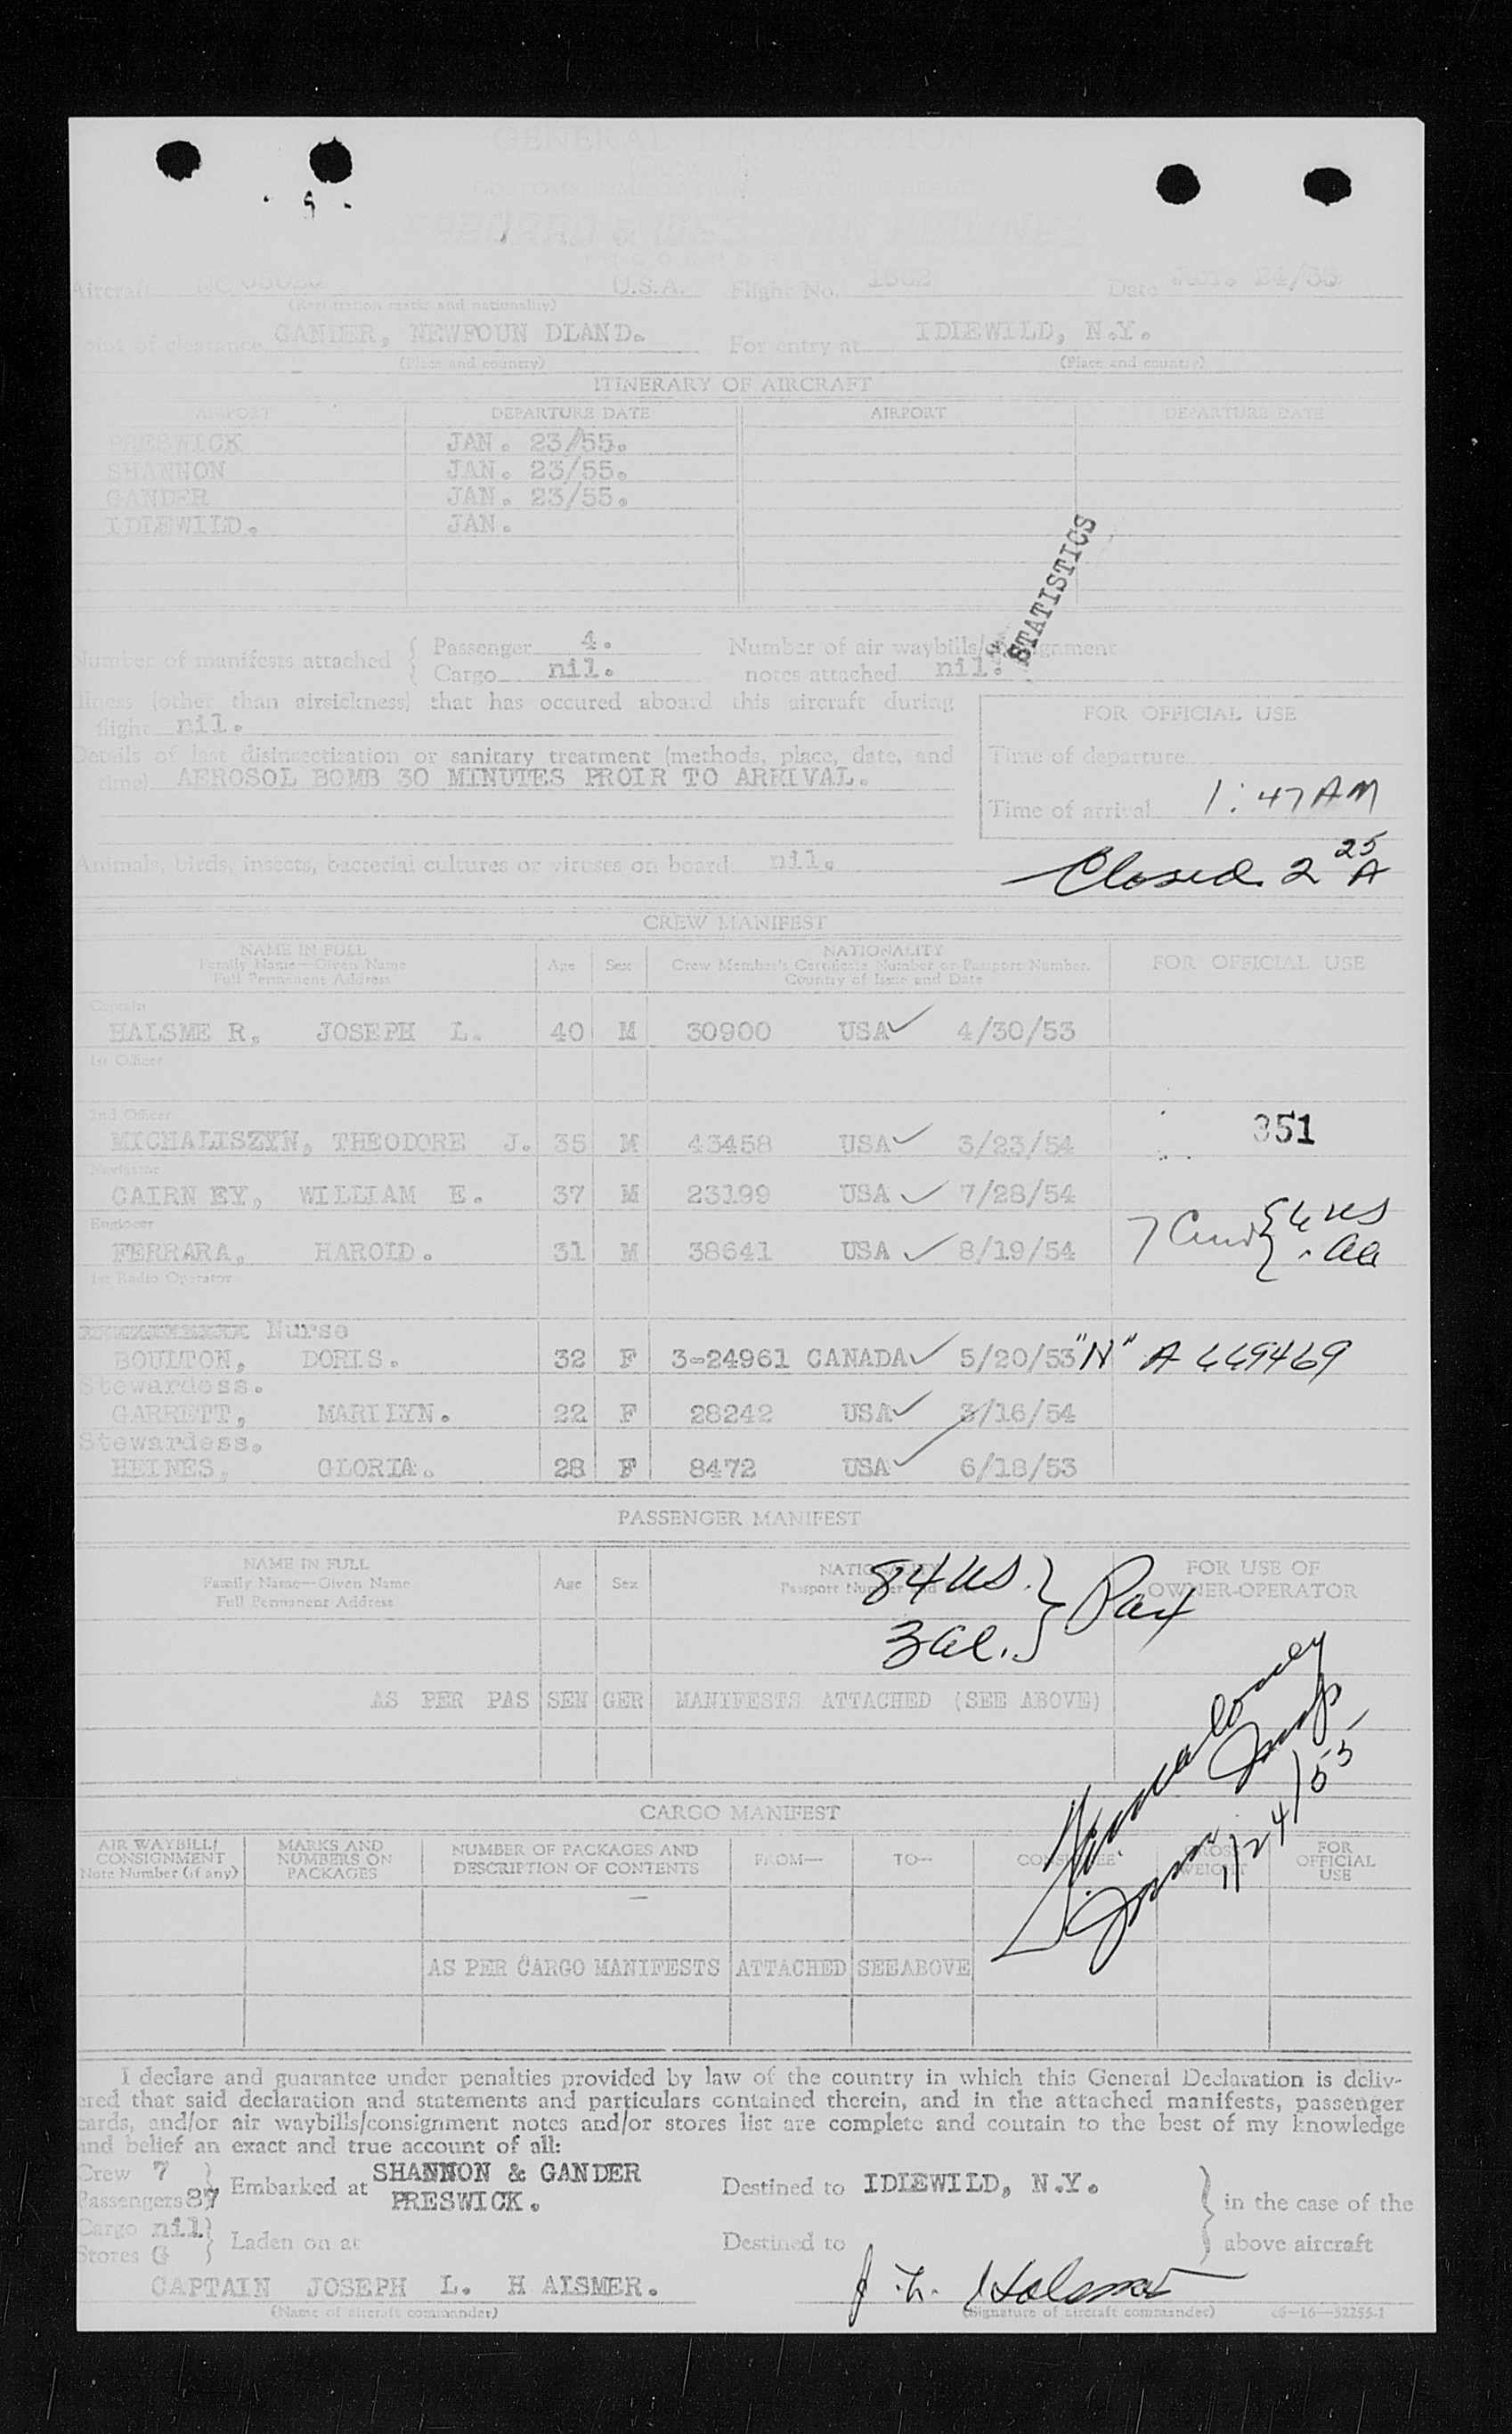 GENERAL DECLARATION
Aircraft U.S.A. Flight No. 1662 Date Jan. 24/55
(Registration marks and nationality)
Point of clearance GANDER, NEWFOUN DLAND. For entry at IDLEWILD, N.Y.
(Place and country) (Place and country)
ITINERARY OF AIRCRAFT
AIRPORT DEPARTURE DATE AIRPORT DEPARTURE DATE
PRESWICK JAN. 23/55.
SHANNON JAN. 23/55.
GANDER JAN. 23/55.
IDLEWILD. JAN.
STATISTICS
Number of manifests attached { Passenger 4. Number of air waybills/consignment
Cargo nil. notes attached nil.
Illness (other than airsickness) that has occured aboard this aircraft during
flight nil.
FOR OFFICIAL USE
Details of last disinsectization or sanitary treatment (methods, place, date, and
time) AEROSOL BOMB 30 MINUTES PROIR TO ARRIVAL.
Time of departure
Time of arrival 1:47 AM
Animals, birds, insects, bacterial cultures or viruses on board nil.
Closed 2 25 A
CREW MANIFEST
NAME IN FULL
Family Name—Given Name
Full Permanent Address
Age Sex
NATIONALITY
Crew Member's Certificate Number or Passport Number.
Country of Issue and Date
FOR OFFICIAL USE
Captain
HALSME R, JOSEPH L. 40 M 30900 USA✓ 4/30/53
1st Officer
2nd Officer
MICHALISZYN, THEODORE J. 35 M 43458 USA✓ 3/23/54 351
Navigator
CAIRN EY, WILLIAM E. 37 M 23199 USA ✓ 7/28/54
Engineer
FERRARA, HAROLD. 31 M 38641 USA ✓ 8/19/54 7 Crew { 6 US
1 al
1st Radio Operator
Nurse
BOULTON, DORIS. 32 F 3-24961 CANADA✓ 5/20/53 "N" A 669469
Stewardess.
GARRETT, MARILYN. 22 F 28242 USA✓ 3/16/54
Stewardess.
HEINES, GLORIA. 28 F 8472 USA✓ 6/18/53
PASSENGER MANIFEST
NAME IN FULL
Family Name—Given Name
Full Permanent Address
Age Sex
NATIONALITY
Passport Number and
FOR USE OF
OWNER-OPERATOR
84 US. } Pax
3 al.
AS PER PAS SEN GER MANIFESTS ATTACHED (SEE ABOVE)
Imm Insp
1/24/55
CARGO MANIFEST
AIR WAYBILL/
CONSIGNMENT
Note Number (if any)
MARKS AND
NUMBERS ON
PACKAGES
NUMBER OF PACKAGES AND
DESCRIPTION OF CONTENTS
FROM— TO— CONSIGNEE
GROSS
WEIGHT
FOR
OFFICIAL
USE
AS PER CARGO MANIFESTS ATTACHED SEE ABOVE
I declare and guarantee under penalties provided by law of the country in which this General Declaration is deliv-
ered that said declaration and statements and particulars contained therein, and in the attached manifests, passenger
cards, and/or air waybills/consignment notes and/or stores list are complete and contain to the best of my knowledge
and belief an exact and true account of all:
Crew 7
Passengers 87
Embarked at SHANNON & GANDER
PRESWICK.
Destined to IDLEWILD, N.Y.
in the case of the
above aircraft
Cargo nil
Stores G
Laden on at
Destined to
CAPTAIN JOSEPH L. H ALSMER.
J. L. Halsmer
(Name of aircraft commander) (Signature of aircraft commander) 16—52255-1